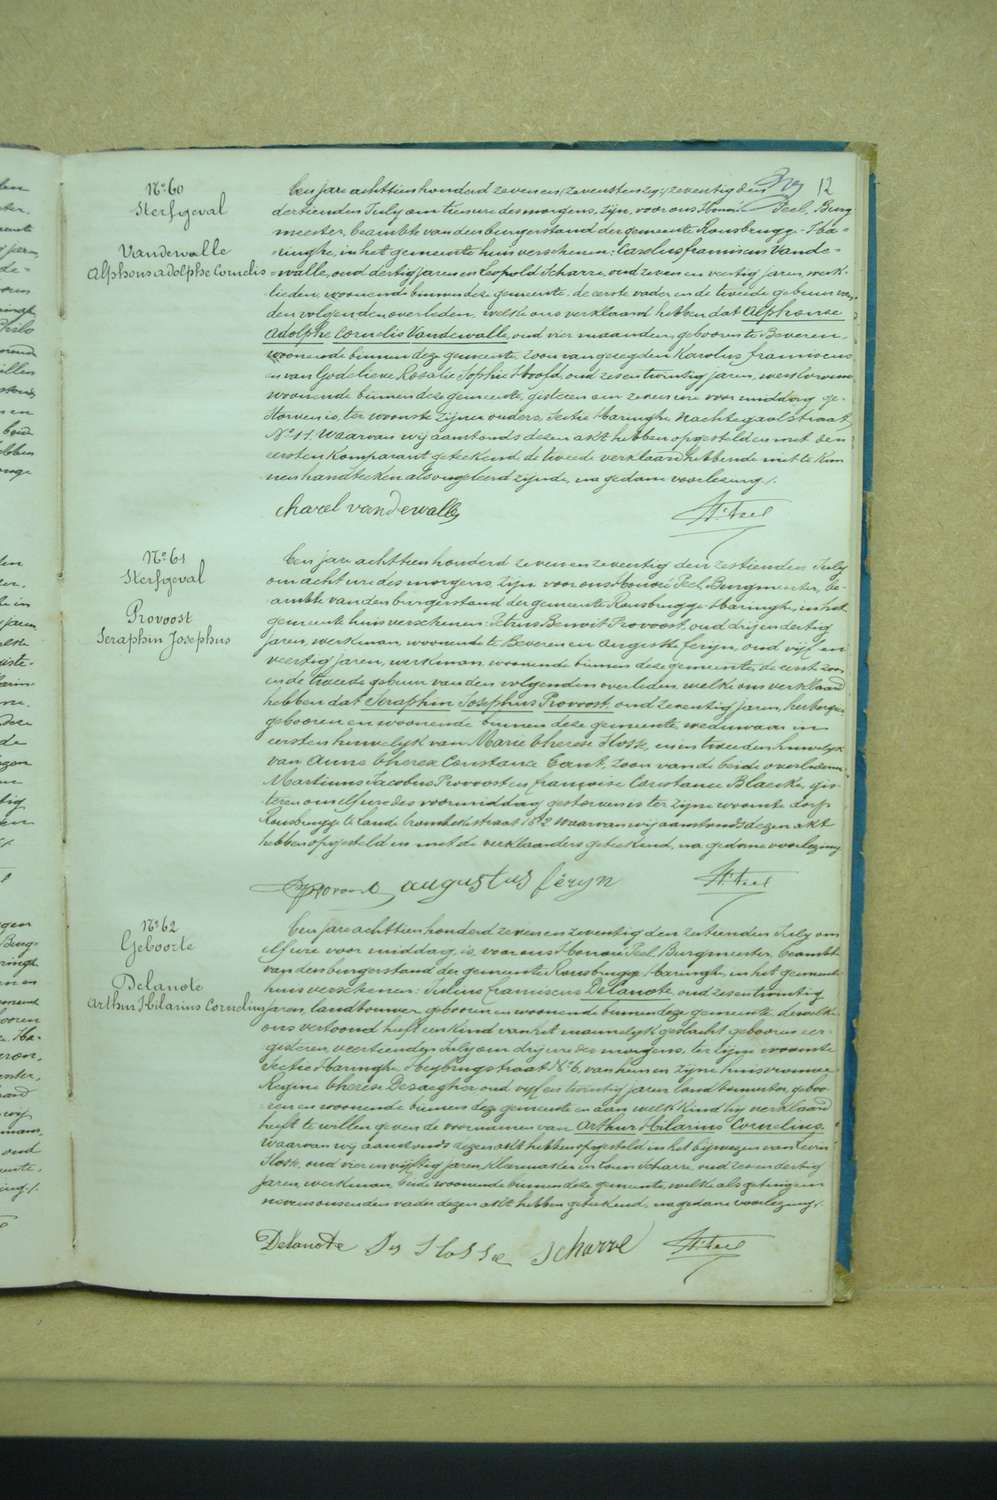 12
Nº 60
Sterfgeval
Vandewalle
Alphons Adolphe Cornelis
Een jare achttien honderd zeven en zeventig den
dertienden July om tien ure des morgens, zijn, voor ons Honoré Peel, Burg
meester, beambte van den burgerstand der gemeente Rousbrugge-Ha=
=ringhe, in het gemeente huis verschenen: Carolus franciscus Vande=
=walle, oud dertig jaren en Leopold Scharre, oud zeven en veertig jaren, werk=
lieden, woonende binnen deze gemeente, de eerste vader en de tweede gebuur van
den volgenden overleden, welke ons verklaard hebben dat Alphonse
Adolphe Cornelis Vandewalle, oud vier maanden, geboren te Beveren,
woonende binnen deze gemeente, zoon van gezegden Karolus franciscus
en van Godelieve Rosalie Sophie Hoofd, oud zes en twintig jaren,
woonende binnen deze gemeente, gisteren om zeven ure voor middag ge=
storven is, ter woonste zijner ouders, Sectie Haringhe Nachtegaalstraat,
Nº 11. Waarvan wij aanstonds dezen akt hebben opgesteld en met den
eersten komparant geteekend, de tweede verklaard hebbende niet te kun
nen handteeken als ongeleerd zijnde, na gedane voorlezing /.
charel vandewalle
H. Peel
Nº 61
Sterfgeval
Provoost
Seraphin Josephus
Een jare achttien honderd zeven en zeventig den zestienden July
om acht ure des morgens, zijn voor ons Honoré Peel, Burgmeester, be=
ambte van den burgerstand der gemeente Rousbrugge Haringhe, in het
gemeente huis verschenen: Petrus Benoit Provoost, oud drij en dertig
jaren, werkman, woonende te Beveren en Auguste feryn, oud vijf en
veertig jaren, werkman, woonende binnen deze gemeente, de eerste zoon
en de tweede gebuur van den volgenden overleden, welke ons verklaard
hebben dat Seraphin Josephus Provoost, oud zeventig jaren, herbergier,
gebooren en woonende binnen deze gemeente, weduwaar in
eersten huwelyk van Marie Therese Slosse, en in tweeden huwelyk
van Anne Therese Constance Cant, zoon van de beide overledenen
Martinus Jacobus Provoost en françoise Constance Blaecke, gis
teren om elf ure des voormiddag gestorven is ter zijne woonste dorp
Rousbrugge te lande Crombekestraat Nº 2. Waarvan wij aanstonds dezen akt
hebben opgesteld en met de verklaarders geteekend, na gedane voorlezing
augustus féryn
H. Peel
Nº 62
Geboorte
Delanote
Arthur Hilarius Cornelius
Een jare achttien honderd zeven en zeventig den zestienden July om
elf ure voor middag, is, voor ons Honoré Peel, Burgmeester, beambte
van den burgerstand der gemeente Rousbrugge Haringhe, in het gemeente
huis verschenen: Julius franciscus Delanote, oud zes en twintig
jaren, landbouwer, geboren en woonende binnen deze gemeente, dewelke
ons vertoond heeft een kind van het mannelyk geslacht, gebooren eer=
gisteren, veertienden July om drij ure des morgens, ter zijne woonste
Sectie Haringhe Heybrugstraat Nº 6, van hem en zijne huisvrouwe
Regine Therese Desaegher oud vijf en twintig jaren landbouwster, geboo=
ren en woonende binnen deze gemeente en aan welk kind hij verklaard
heeft te willen geven de voornamen van Arthur Hilarius Cornelius.
Waarvan wij aanstonds dezen akt hebben opgesteld in het bijwezen van
Slosse, oud vier en vijftig jaren, en Louis Scharre, oud zes en dertig
jaren, werkman, beide woonende binnen deze gemeente, welke als getuigen
nevens ons en den vader dezen akt hebben geteekend, na gedane voorlezing /.
Delanote Slosse Scharre H. Peel